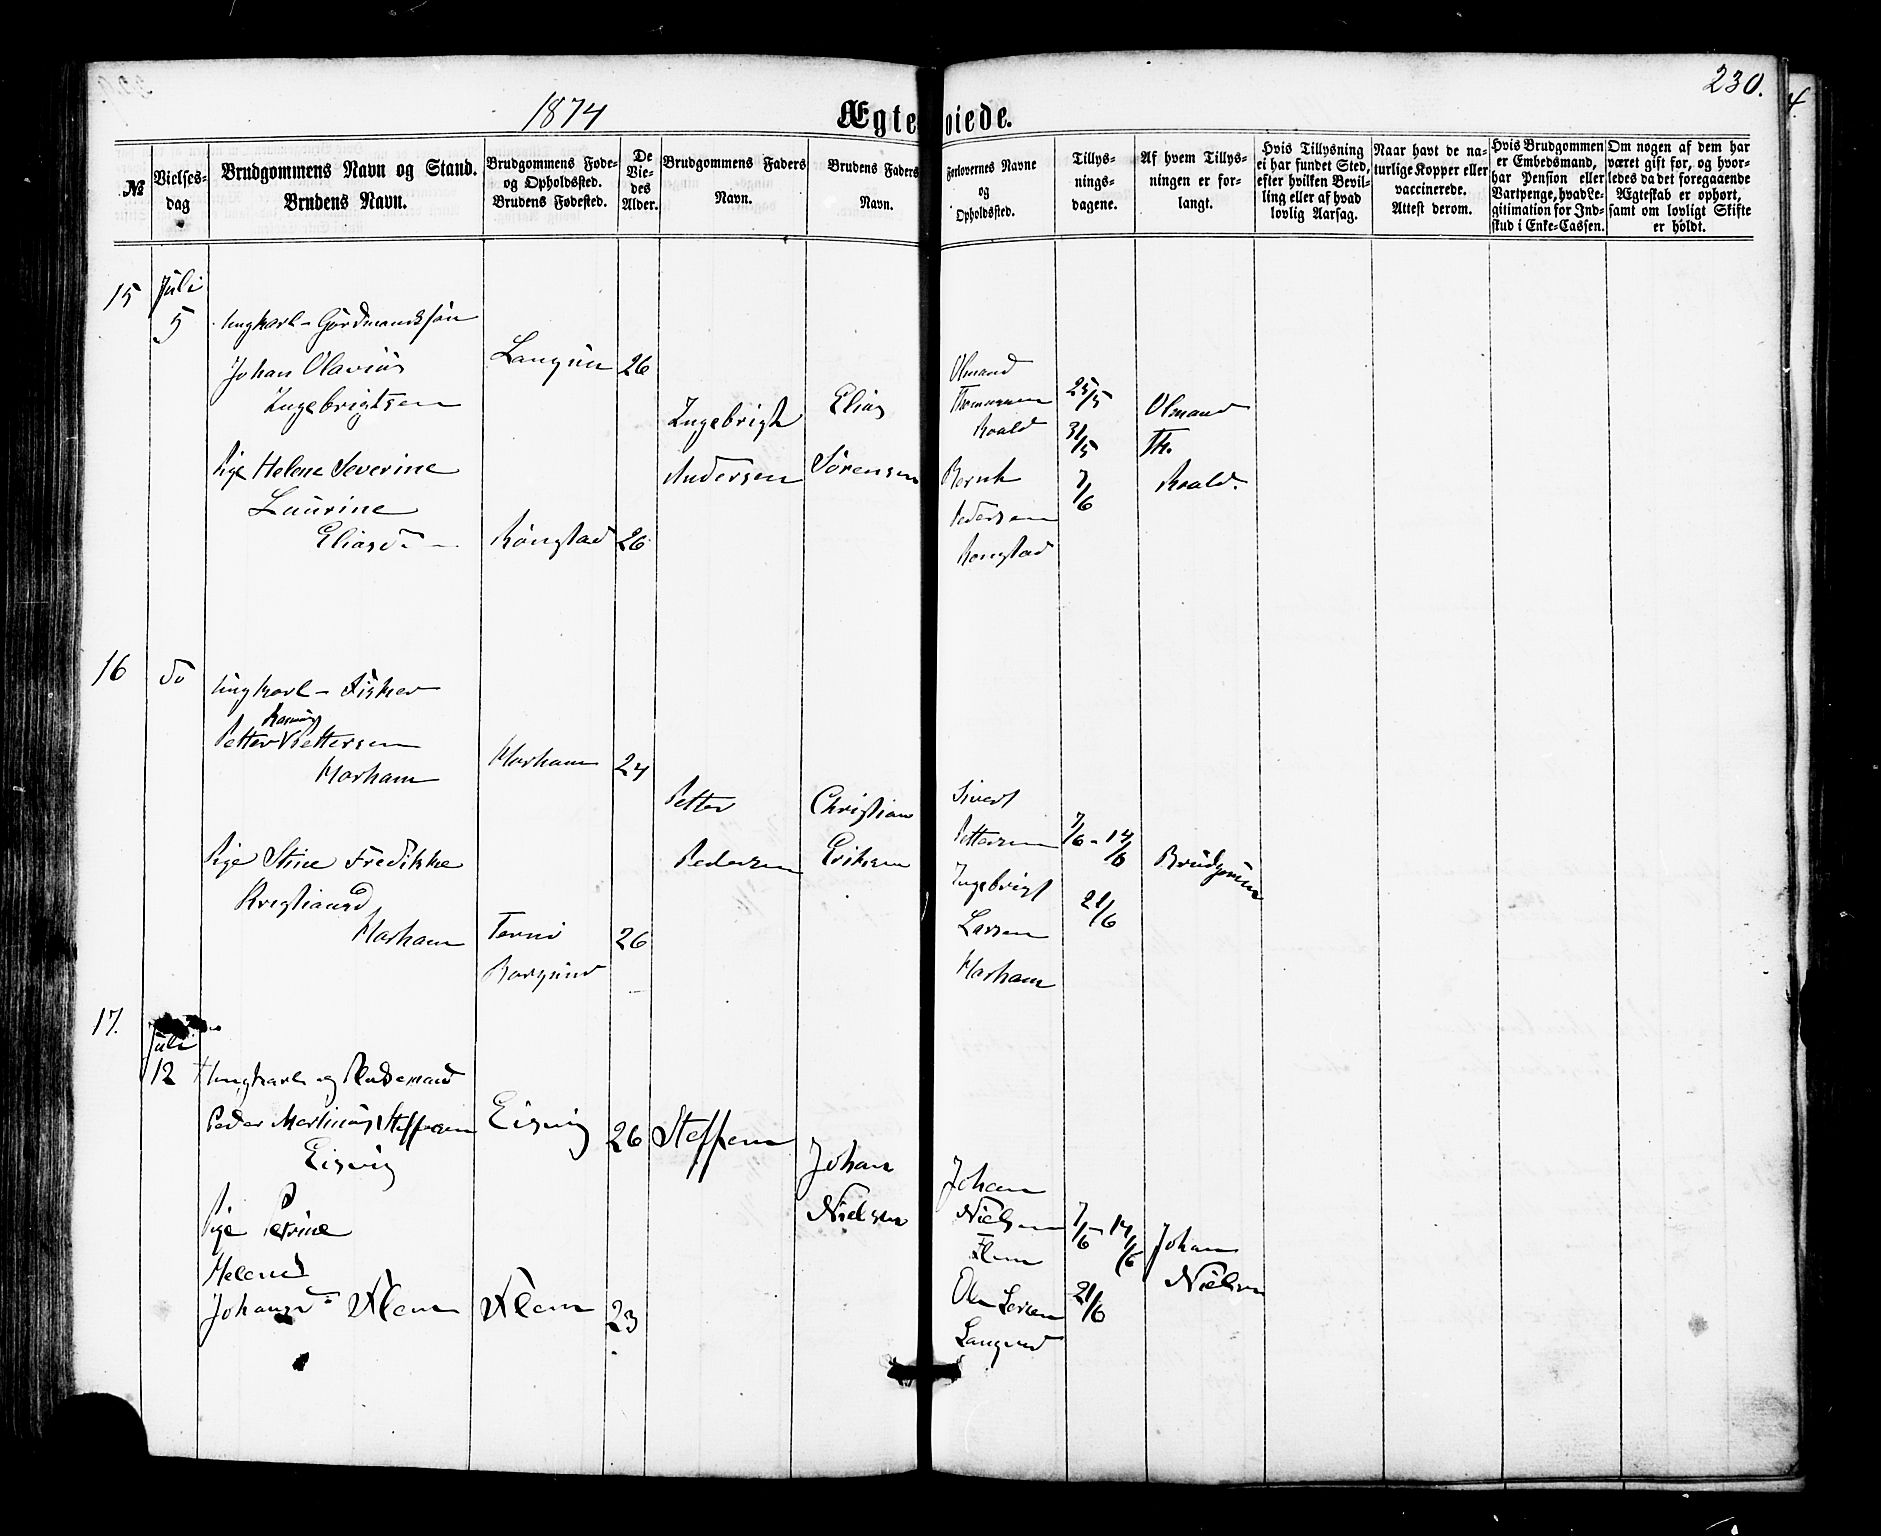 1874
Ægteviede.
230.
№
Vielses-
dag
Brudgommens Navn og Stand.
Brudens Navn.
Brudgommens Føde-
og Opholdssted.
Brudens Fødested.
De
Vie-
des
Alder.
Brudgommens Faders
Navn.
Brudens Faders
Navn.
Forlovernes Navne
og
Opholdssted.
Tillys-
nings-
dagene.
Af hvem Tillys-
ningen er for-
langt.
Hvis Tillysning
ei har fundet Sted,
efter hvilken Bevil-
ling eller af hvad
lovlig Aarsag.
Naar havt de na-
turlige Kopper eller
vaccinerede.
Attest derom.
Hvis Brudgommen
er Embedsmand,
har Pension eller
Vartpenge, hvad Le-
gitimation for Ind-
skud i Enke-Cassen.
Om nogen af dem har
været gift før, og hvor-
ledes da det foregaaende
Ægteskab er ophørt,
samt om lovligt Skifte
er holdt.
15
Juli
5
Ungkarl - Gårdmandssøn
Johan Olavius
Ingebrigtsen
Pige Helene Severine
Laurine
Eliasd
Rønstad
26
26
Ingebrigt
Andersen
Elias
Sørensen
Olmand
Thomassen
Roald
Bernt
Pedersen
Ronstad
25/5
31/5
7/6
Olmand
Th.
Roald.
16
do
Ungkarl - Fisker
Rasmus
Petter V Pettersen
Harham
Pige Stine Fredikke
Kristiansd
Harham
Harham
24
26
Borgund
Petter
Pedersen
Christian
Eriksen
Sivert
Pettersen
Ingebrigt
Larsen
Harham
7/6 - 14/6
21/6
17.
Juli
12
Ungkarl og
Peder Martinus Steffensen
Eisvig
Pige Petrine
Helene
Johansd Flem
Eisvig
26
Flem
23
Steffen
Johan
Nielsen
Johan
Nielsen
Flem
Ole Larsen
7/6 - 14/6
21/6
Johan
Nielsen